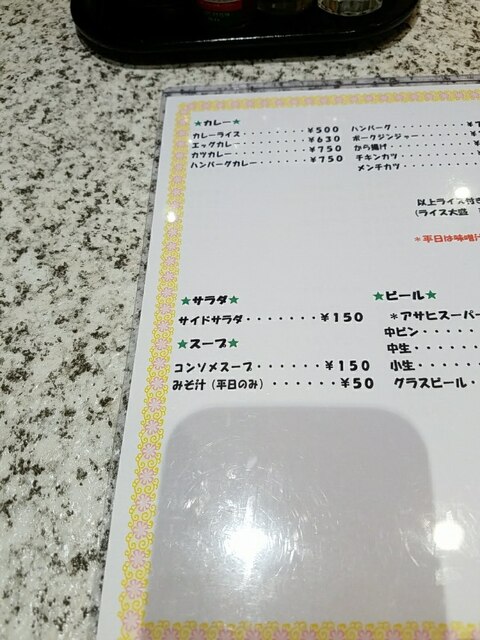 ★カレー★
カレーライス・・・・・・・・・¥500
エッグカレー・・・・・・・・・¥630
カツカレー・・・・・・・・・¥750
ハンバーグカレー・・・・・・¥750
ハンバーグ・・・・・・・・・¥7
ポークジンジャー・・・・・・
から揚げ・・・・・・・・・
チキンカツ・・・・・・・・
メンチカツ・・・・・・・・
以上ライス付き
(ライス大盛
＊平日は味噌汁
★サラダ★
サイドサラダ・・・・・・・¥150
★スープ★
コンソメスープ・・・・・・¥150
みそ汁（平日のみ）・・・・・・¥50
★ビール★
＊アサヒスーパー
中ビン・・・・
中生・・・・・
小生・・・・・
グラスビール・